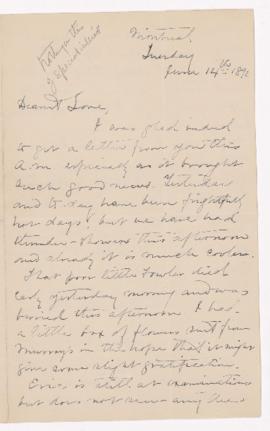 Montreal.
Tuesday
June 14th 189
Dearest Love,
I was glad indeed
to get a letter from you this
a.m. especially as it brought
such good news. Yesterday
and to day have been frightfully
hot days, but we have had
thunder-showers this afternoon
and already it is much cooler.
That poor little Fowler died
early yesterday morning and was
buried this afternoon. I had
a little box of flowers sent from
Murray's in the hope that it might
give some slight gratification.
Eric is still at examinations
but does not seem any